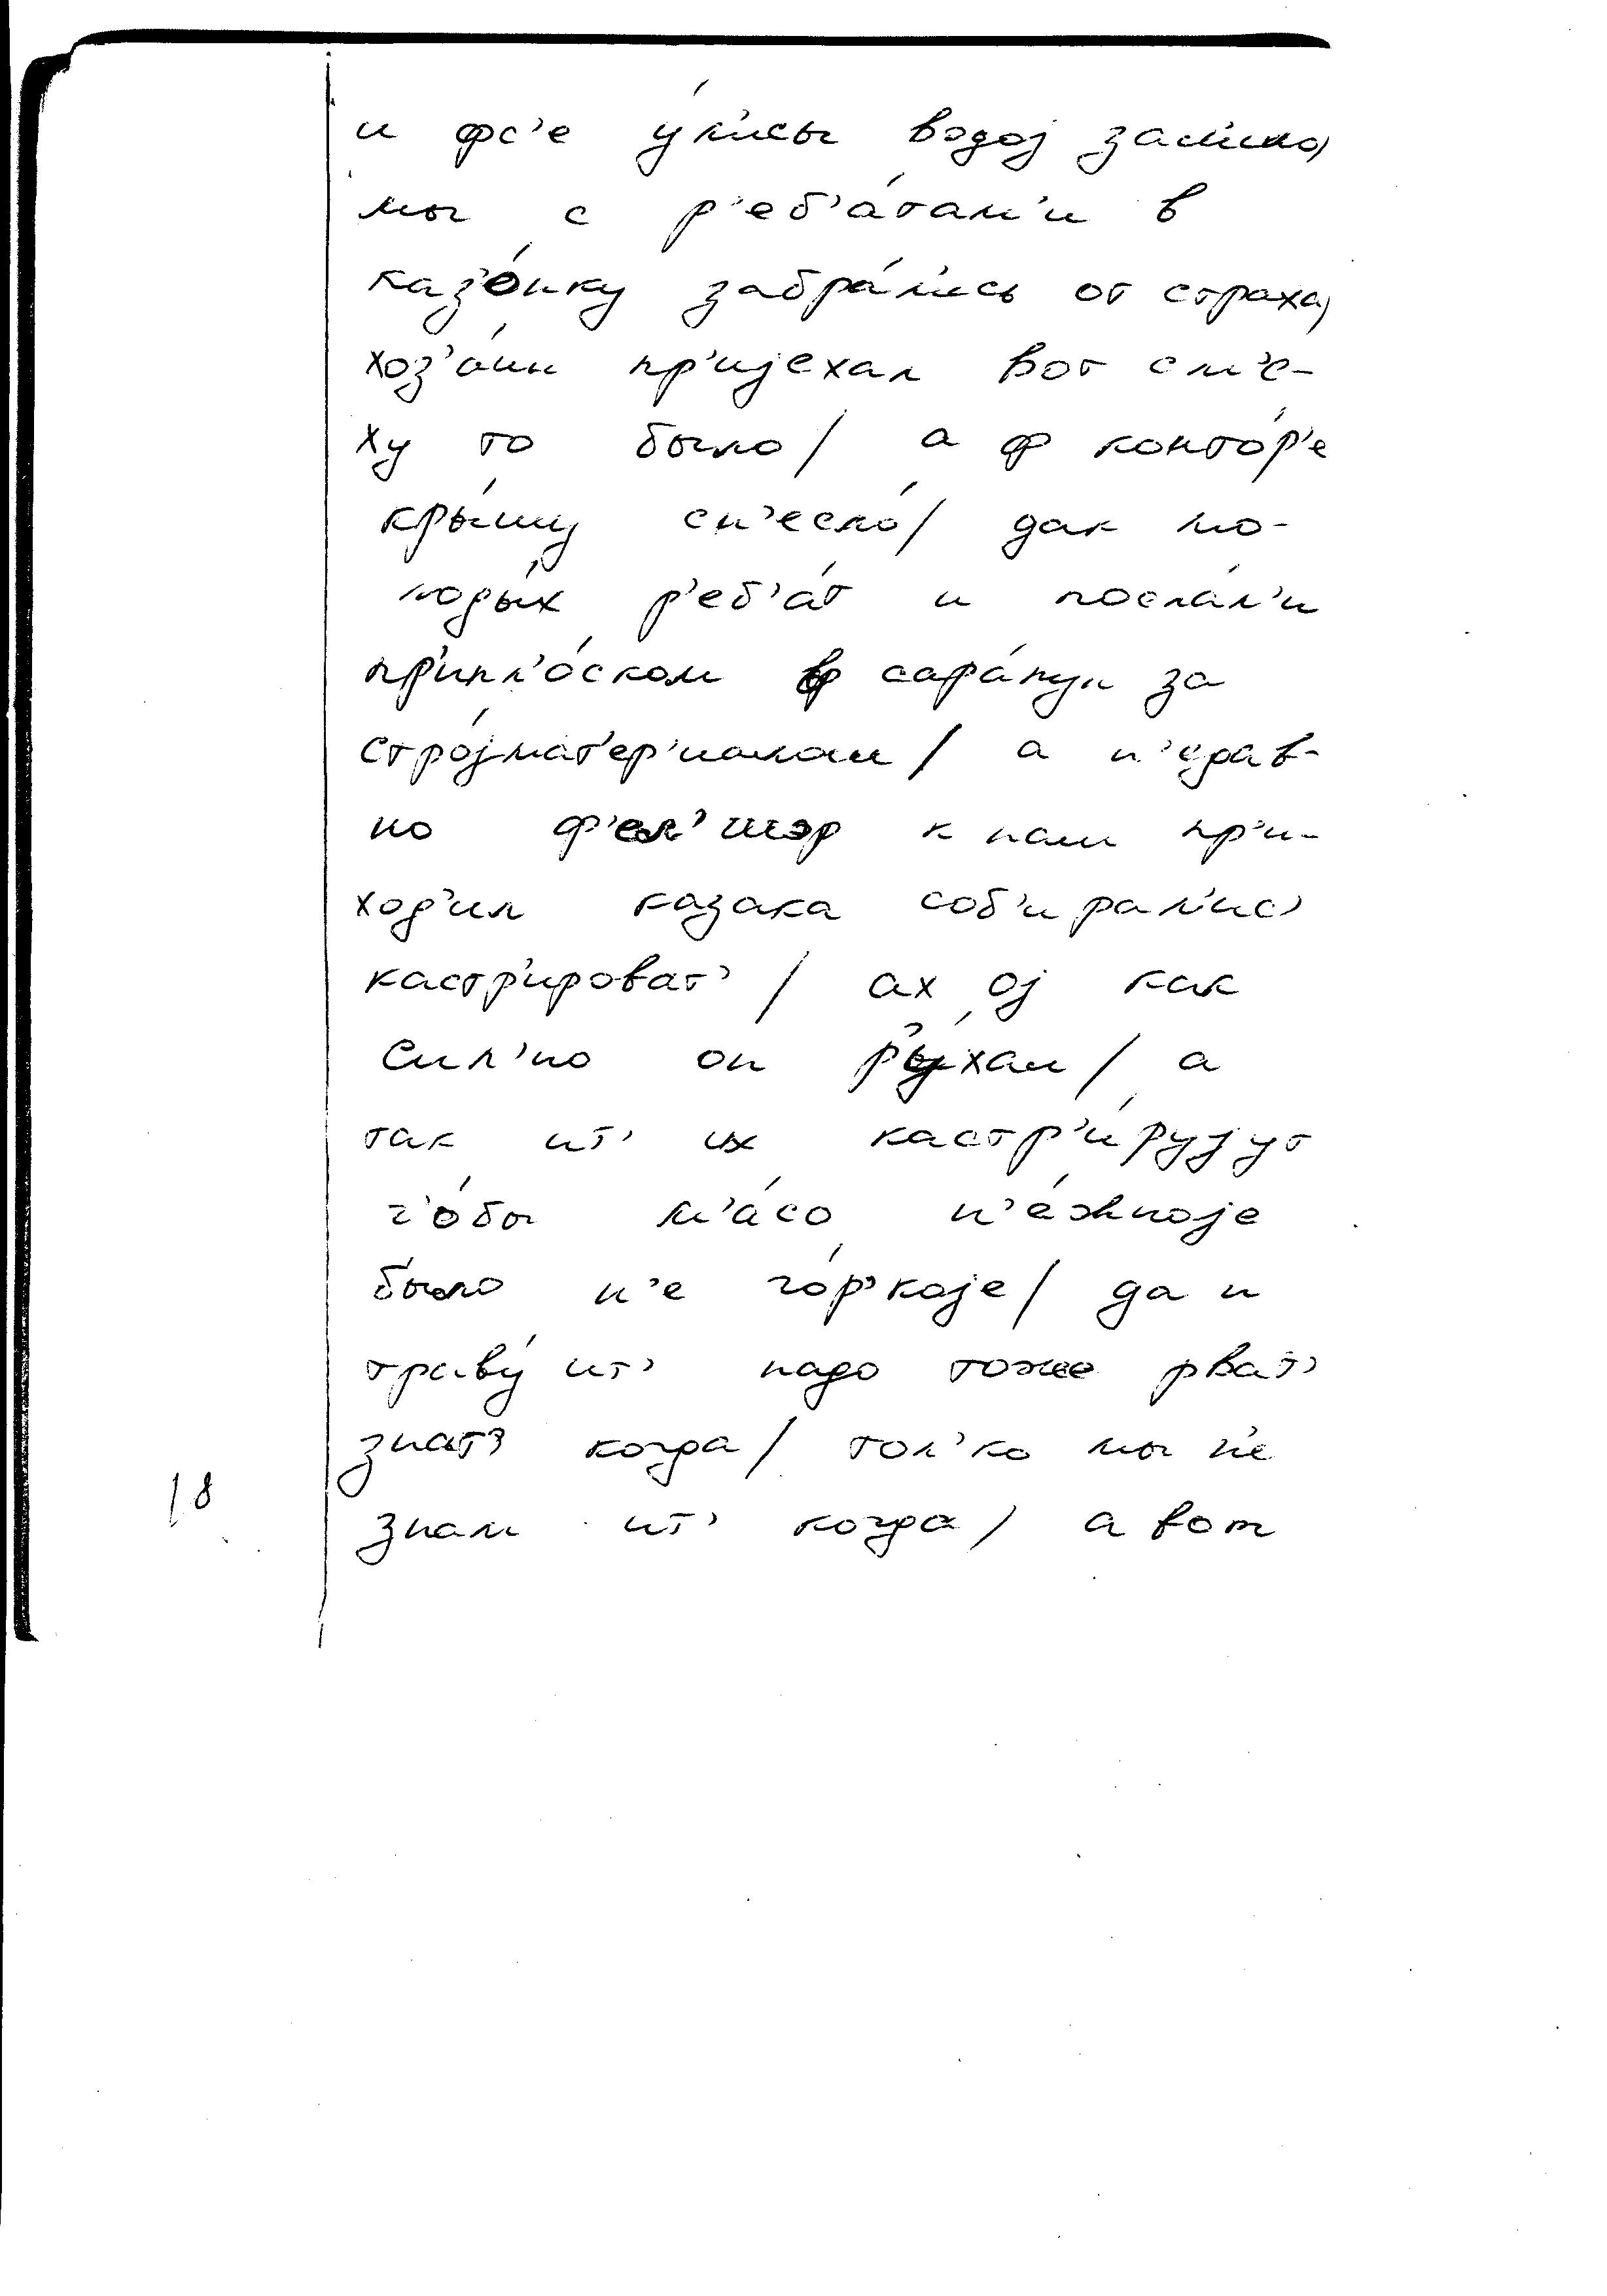 и фс'е у́л'исы водој зал'ило/
мы с р'еб'а́там'и в
каз'о́нку забра́л'ись от страха/
хоз'а́ин пр'ијехал вот см'е-
ху то было/ а ф конто́р'е
кры́шу сн'есло́/ дак мо-
лоды́х р'еб'а́т и посла́л'и
пр'ипл'о́ском ф сара́пул за
стро́јмат'ер'иалам/ а н'едав-
но ф'ел'шэр к нам пр'и-
ход'ил казака соб'ирал'ис'
кастр'ироват' / ах ој как
сил'но он р'у́хал/ а
так ит' их кастр'и́рујут
г'о́бы м'а́со н'е́жноје
было н'е го́р'које/ да и
траву́ ит' надо тоже рват'
знат' когда/ тол'ко мы н'е
знам ит' когда/ а вот
18